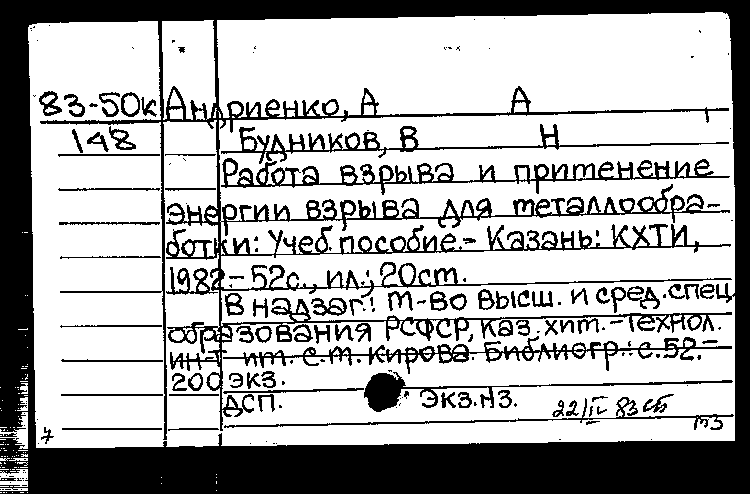 83-50к Андриенко, А А
148 Будников, В Н
Работа взрыва и применение
энергии взрыва для металлообра-
ботки: Учеб. пособие.- Казань: КХТИ,
1982.- 52с., ил.; 20см.
В надзаг.: М-во высш. и сред. спец.
образования РСФСР, Каз. хим.-технол.
ин-т им. С.М. Кирова. Библиогр.: с.52.-
200 экз.
ДСП. Экз.N3.
22/IV 83 сб
7